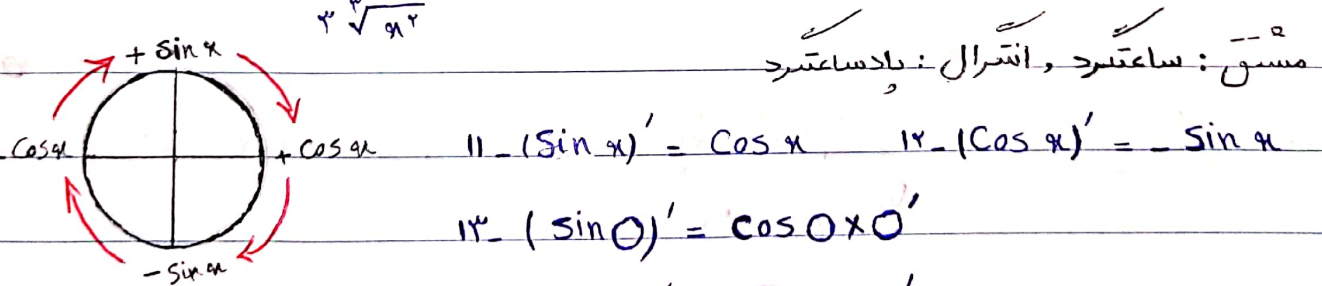 ۳ ∛x^۲
مشتق : ساعتگرد , انتگرال : پادساعتگرد
+ Sin x
- Cos x
+ Cos x
- Sin x
۱۱- (Sin x)' = Cos x ۱۲- (Cos x)' = - Sin x
۱۳- (sin O)' = cos O × O'